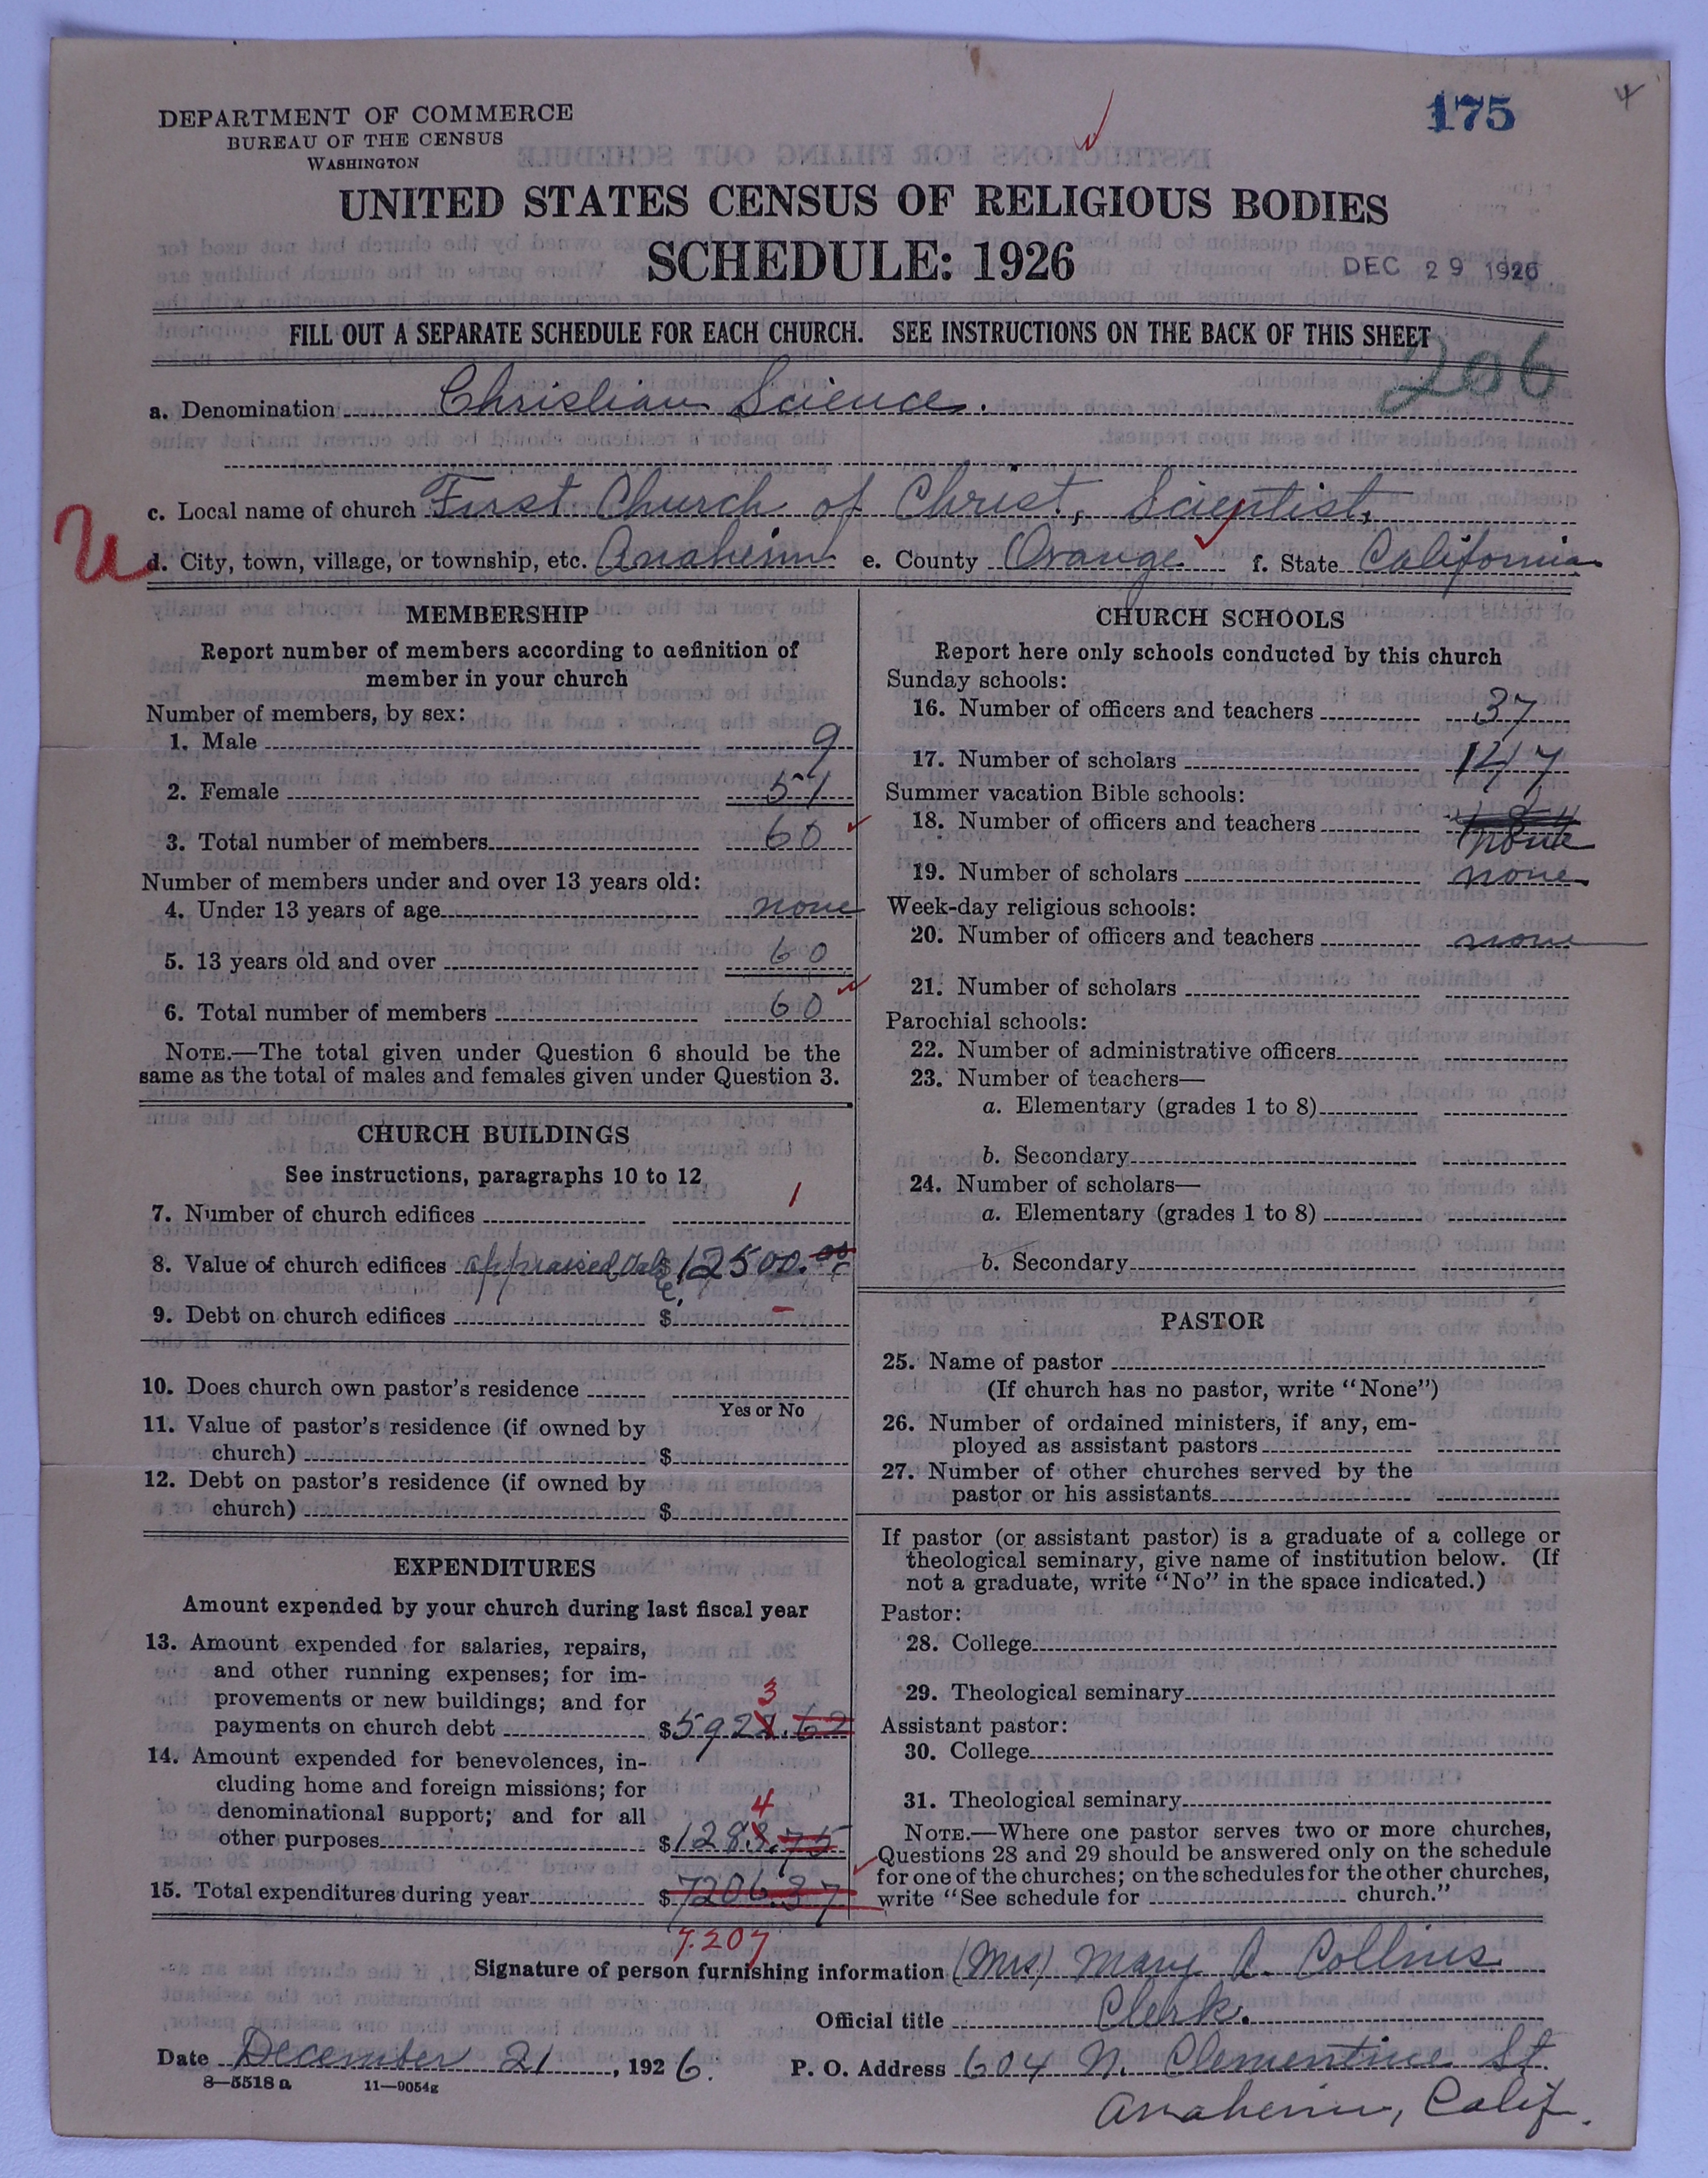 4
175
DEPARTMENT OF COMMERCE
BUREAU OF THE CENSUS
WASHINGTON
UNITED STATES CENSUS OF RELIGIOUS BODIES
SCHEDULE: 1926
DEC 29 1926
FILL OUT A SEPARATE SCHEDULE FOR EACH CHURCH. SEE INSTRUCTIONS ON THE BACK OF THIS SHEET
206
a. Denomination Christian Science.
c. Local name of church First Church of Christ, Scientist,
U
d. City, town, village, or township, etc. Anaheim e. County Orange f. State California
MEMBERSHIP
Report number of members according to definition of
member in your church
Number of members, by sex:
1. Male 9
2. Female 51
3. Total number of members 60
Number of members under and over 13 years old:
4. Under 13 years of age none
5. 13 years old and over 60
6. Total number of members 60
NOTE.—The total given under Question 6 should be the
same as the total of males and females given under Question 3.
CHURCH BUILDINGS
See instructions, paragraphs 10 to 12
7. Number of church edifices 1
8. Value of church edifices appraised Value $12500.00
9. Debt on church edifices $ –
10. Does church own pastor's residence
Yes or No
11. Value of pastor's residence (if owned by
church) $
12. Debt on pastor's residence (if owned by
church) $
EXPENDITURES
Amount expended by your church during last fiscal year
13. Amount expended for salaries, repairs,
and other running expenses; for im-
provements or new buildings; and for
3
payments on church debt $5922.62
14. Amount expended for benevolences, in-
cluding home and foreign missions; for
denominational support; and for all
4
other purposes $1283.75
15. Total expenditures during year $7206.37
7207
CHURCH SCHOOLS
Report here only schools conducted by this church
Sunday schools:
16. Number of officers and teachers 37
17. Number of scholars 147
Summer vacation Bible schools:
18. Number of officers and teachers none
19. Number of scholars none
Week-day religious schools:
20. Number of officers and teachers none
21. Number of scholars
Parochial schools:
22. Number of administrative officers
23. Number of teachers—
a. Elementary (grades 1 to 8)
b. Secondary
24. Number of scholars—
a. Elementary (grades 1 to 8)
b. Secondary
PASTOR
25. Name of pastor
(If church has no pastor, write "None")
26. Number of ordained ministers, if any, em-
ployed as assistant pastors
27. Number of other churches served by the
pastor or his assistants
If pastor (or assistant pastor) is a graduate of a college or
theological seminary, give name of institution below. (If
not a graduate, write "No" in the space indicated.)
Pastor:
28. College
29. Theological seminary
Assistant pastor:
30. College
31. Theological seminary
NOTE.—Where one pastor serves two or more churches,
Questions 28 and 29 should be answered only on the schedule
for one of the churches; on the schedules for the other churches,
write "See schedule for church."
Signature of person furnishing information (Mrs) Mary A. Collins
Official title Clerk.
Date December 21, 1926. P. O. Address 604 N. Clementine St.
8—5518a 11—9054g
Anaheim, Calif.